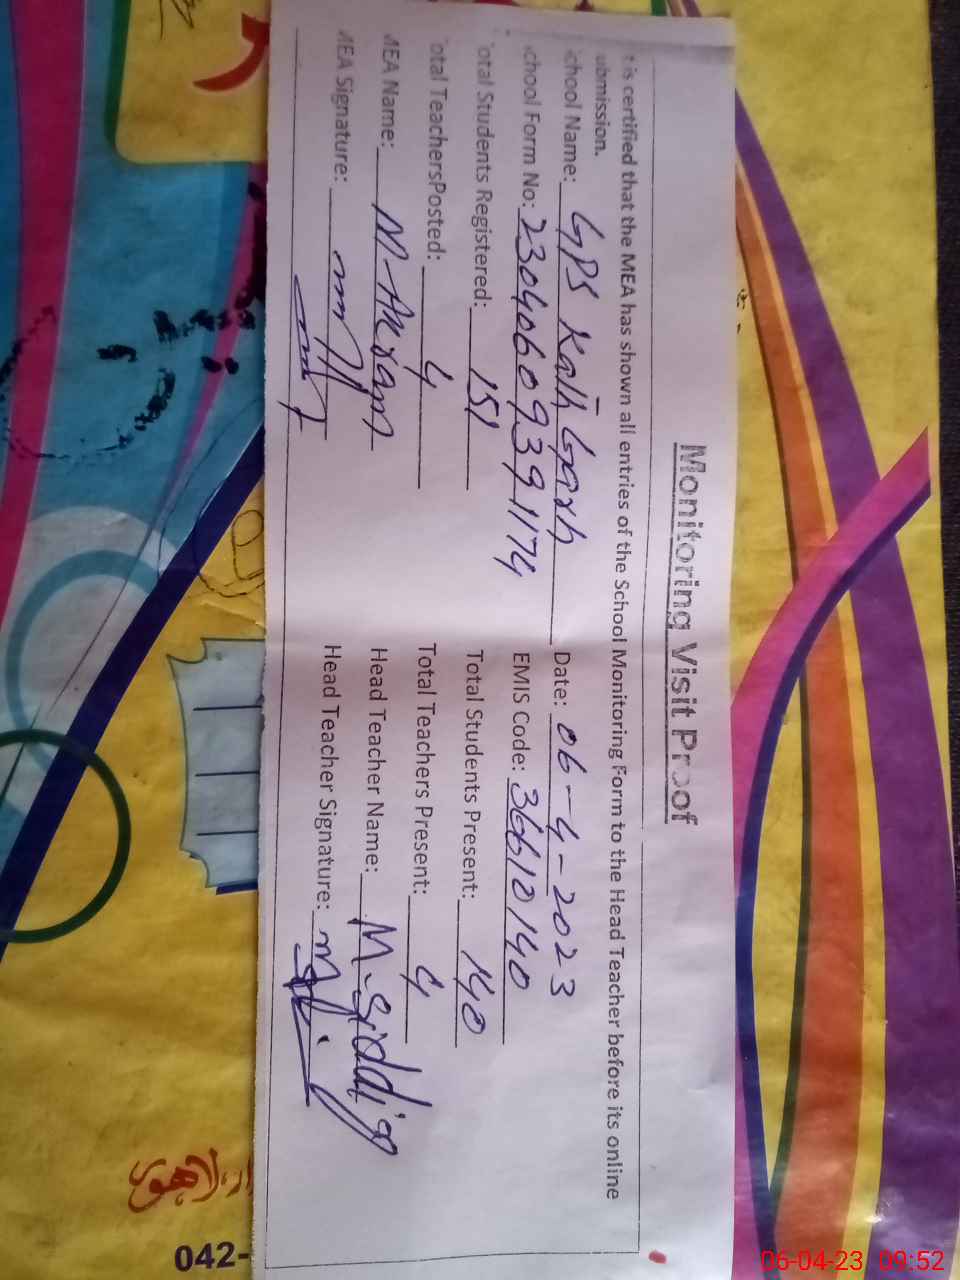 Monitoring Visit Proof
t is certified that the MEA has shown all entries of the School Monitoring Form to the Head Teacher before its online
ubmission.
chool Name: GPS Kath Garh Date: 06-4-2023
chool Form No: 23040609391174 EMIS Code: 36610140
otal Students Registered: 151 Total Students Present: 140
otal TeachersPosted: 4 Total Teachers Present: 4
MEA Name: M-Akram Head Teacher Name: M-Siddiqo
MEA Signature: Head Teacher Signature:
لاہور
042-
06-04-23 09:52